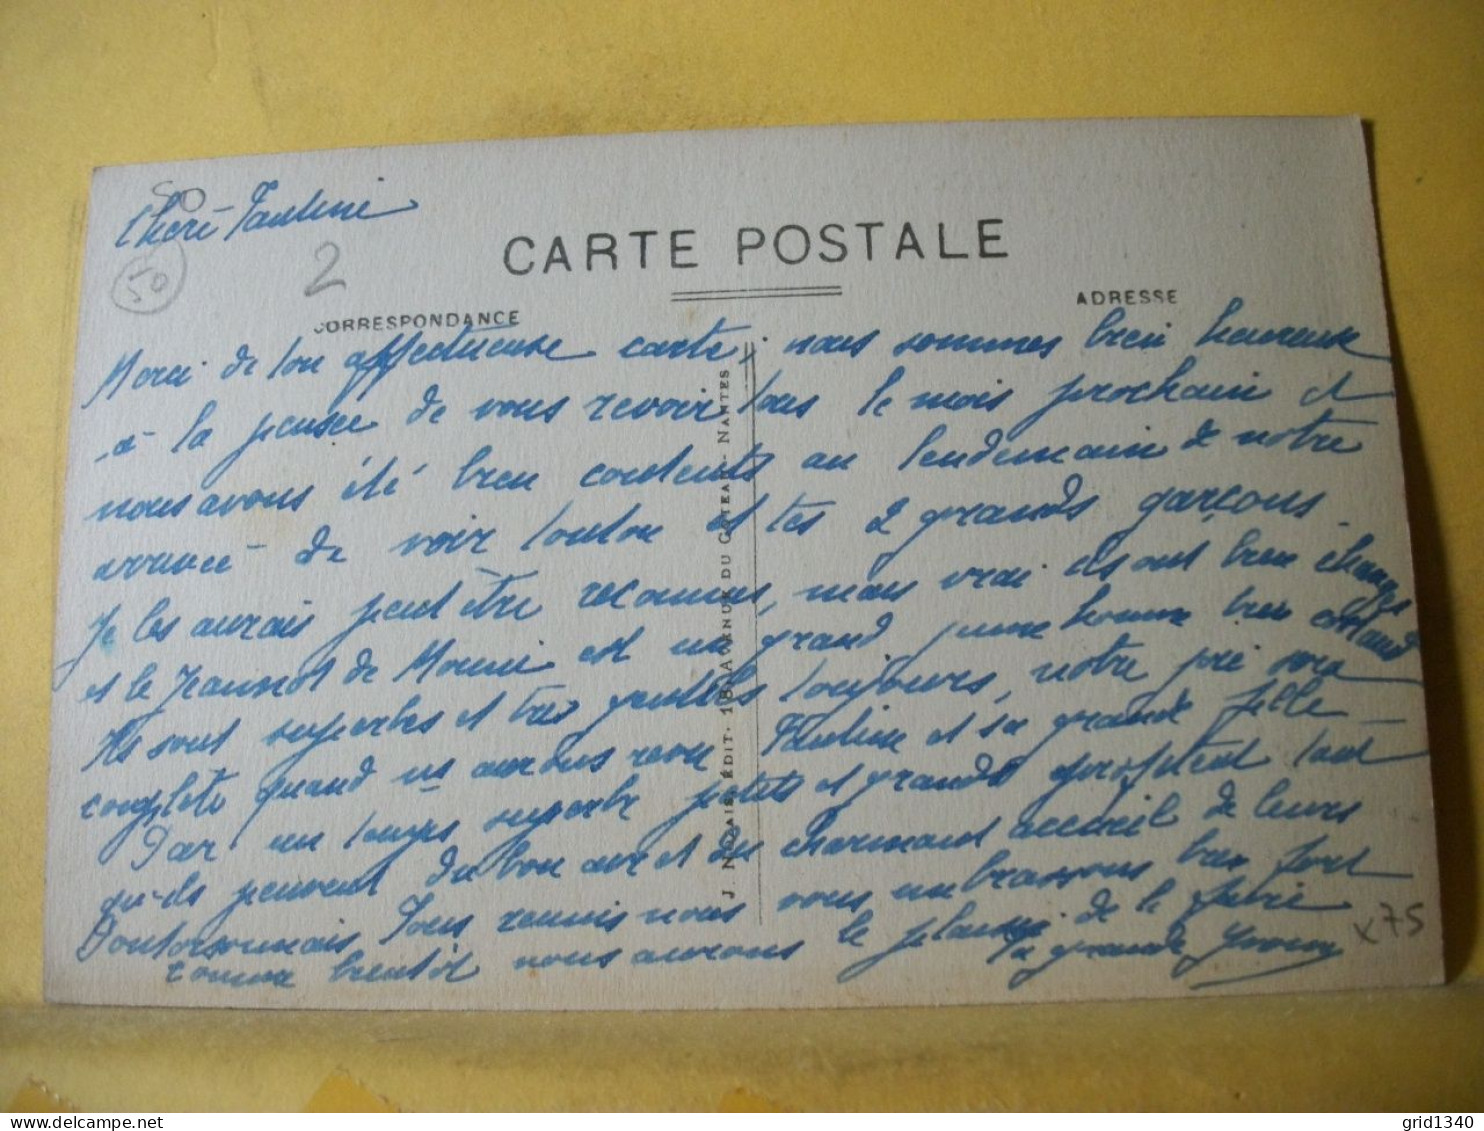 Chère Pauline
50
2
CARTE POSTALE
CORRESPONDANCE
ADRESSE
Merci de ton affectueuse carte, nous sommes bien heureux
à la pensée de vous revoir tous le mois prochain et
nous avons été bien contents au lendemain de notre
arrivée de voir tonton et tes 2 grands garçons.
Je les aurais peut être reconnus, mais vrai ils ont bien changés
et le Jeannot de Mémé est un grand jeune homme bien
Ils sont superbes et très gentils toujours, notre joie sera
complète quand ns aurons revu Pauline et sa grande fille
Par un temps superbe petits et grands profitent tant
qu'ils peuvent du bon air et du charmant accueil de leurs
Pontorsonnais. Tous réunis nous vous embrassons bien fort
comme bientôt nous aurons le plaisir de le faire
Ta grande Yvonne
J. NOZAIS, ÉDIT. - 18, AVENUE DU COTEAU - NANTES
x75
grid1340